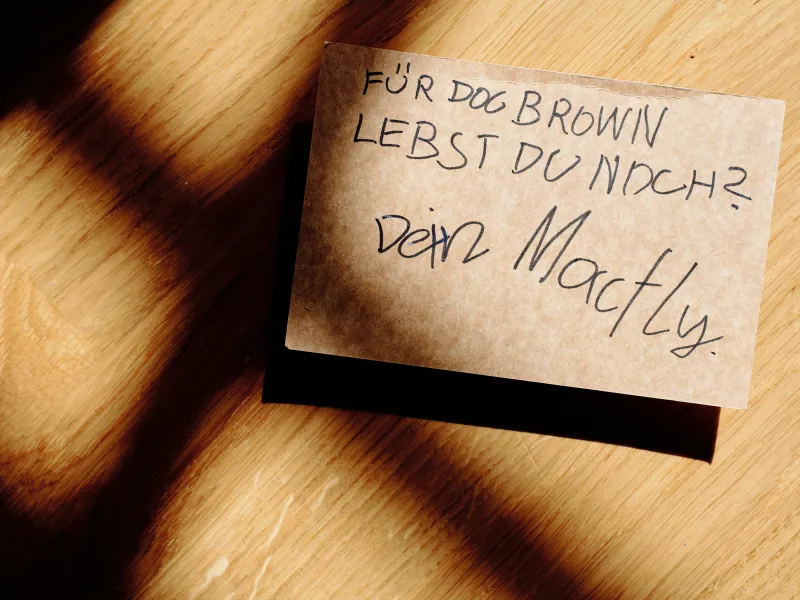 FÜR DOC BROWN
LEBST DU NOCH?
Dein Macfly.